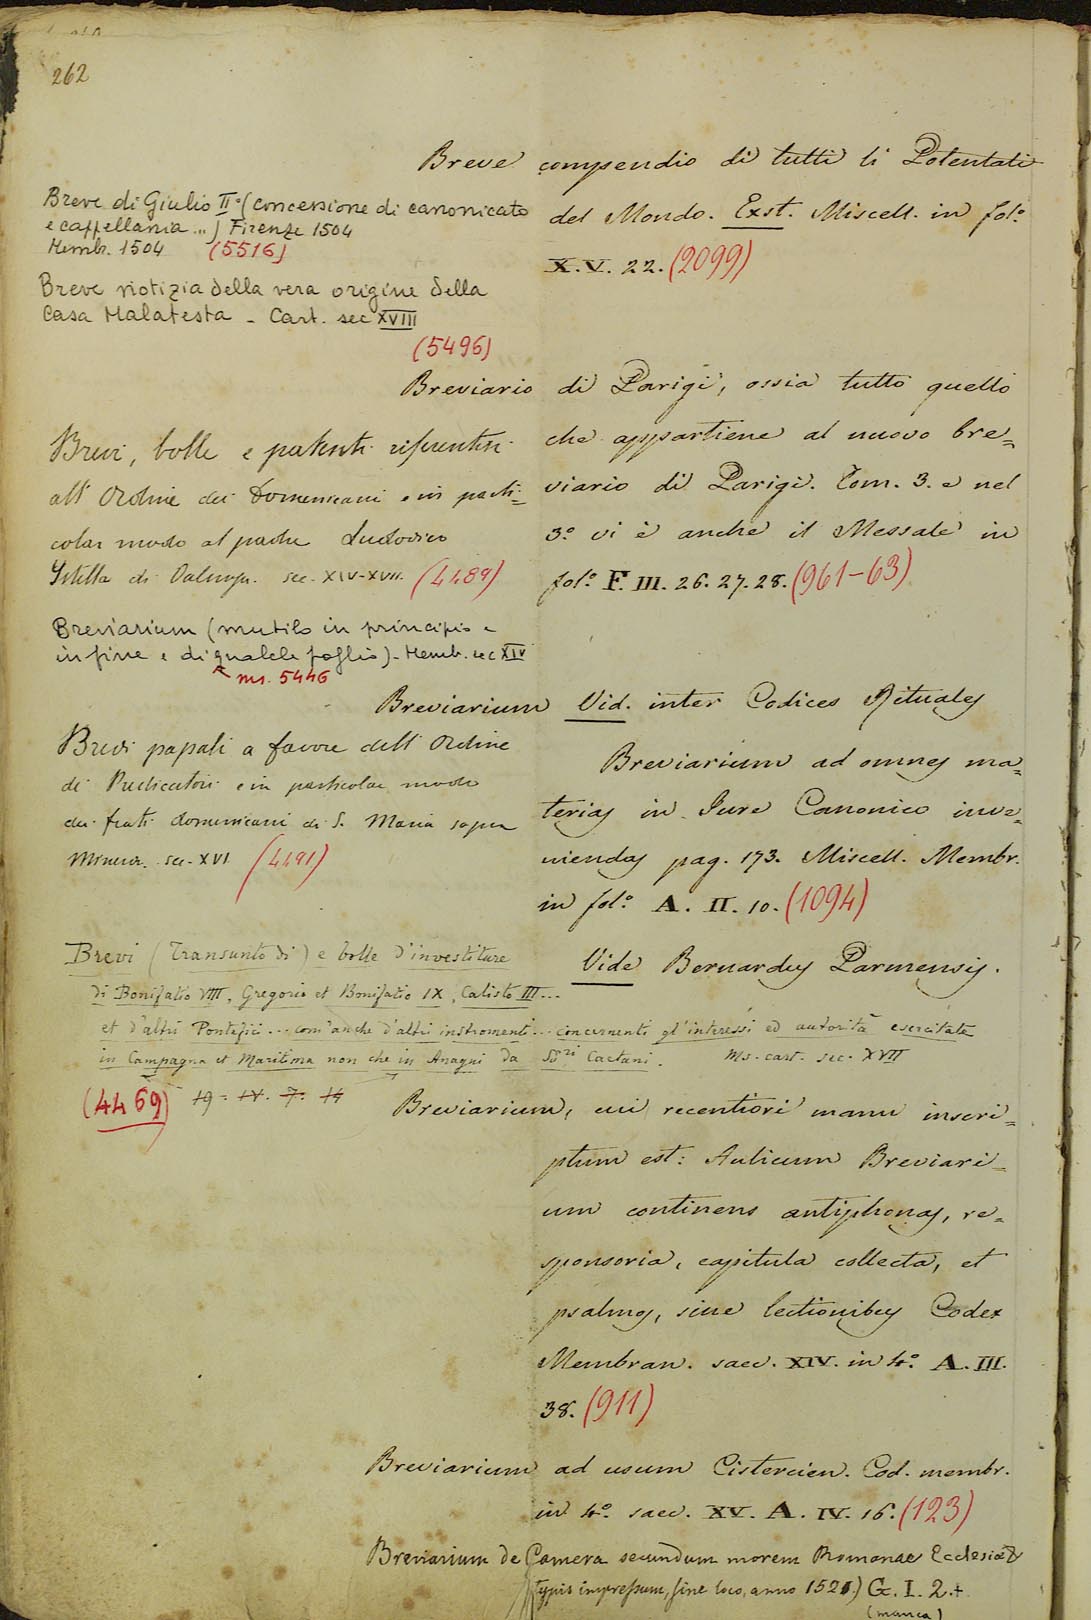 262
Breve compendio di tutti li Potentati
del Mondo. Exst. Miscell. in fol.º
X.V. 22. (2099)
Breve di Giulio IIº (concessione di canonicato
e cappellania ...) Firenze 1504
Membr. 1504 (5516)
Breve notizia della vera origine della
Casa Malatesta - Cart. sec XVIII
(5496)
Breviario di Parigi, ossia tutto quello
che appartiene al nuovo bre=
viario di Parigi. Tom. 3. e nel
3.º vi è anche il Messale in
fol.º F. III. 26. 27. 28. (961-63)
Brevi, bolle e patenti riferentisi
all' Ordine dei Domenicani e in parti=
colar modo al padre Ludovico
Istella di sec. XIV-XVII. (4489)
Breviarium (mutilo in principio e
in fine e di qualche foglio) - Memb. sec XIV
ms. 5446
Breviarium Vid. inter Codices Rituales
Brevi papali a favore dell' Ordine
di Predicatori e in particolar modo
dei frati domenicani di S. Maria sopra
Minerva. sec. XVI (4491)
Breviarium ad omnes ma=
terias in Jure Canonico inve=
niendas pag. 173. Miscell. Membr.
in fol.º A. II. 10. (1094)
Vide Bernardus Parmensis.
Brevi (Transunto di) e bolle d'investiture
di Bonifatio VIII, Gregorio et Bonifatio IX, Calisto III ...
et d'altri Pontefici ... com'anche d'altri instromenti ... concernenti gl'interessi ed autorità esercitate
in Campagna et Maritima non che in Anagni da SSri Caetani. Ms. cart. sec. XVII
(4469) 19 - IV. 7. 14
Breviarium, cui recentiori manu inscri=
ptum est: Aulicum Breviari=
um continens antiphonas, re=
sponsoria, capitula collecta, et
psalmos, sine lectionibus Codex
Membran. saec. XIV. in 4.º A. III.
38. (911)
Breviarium ad usum Cistercien. Cod. membr.
in 4.º saec. XV. A. IV. 16. (123)
Breviarium de Camera secundum morem Romanae Ecclesiae &
(typis impressum, sine loco, anno 1521.) G. I. 2.+
(manca)